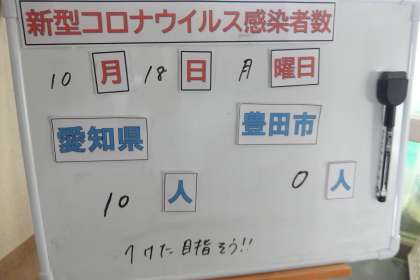 新型コロナウイルス感染者数
10月18日月曜日
愛知県 豊田市
10人 0人
1けた目指そう!!